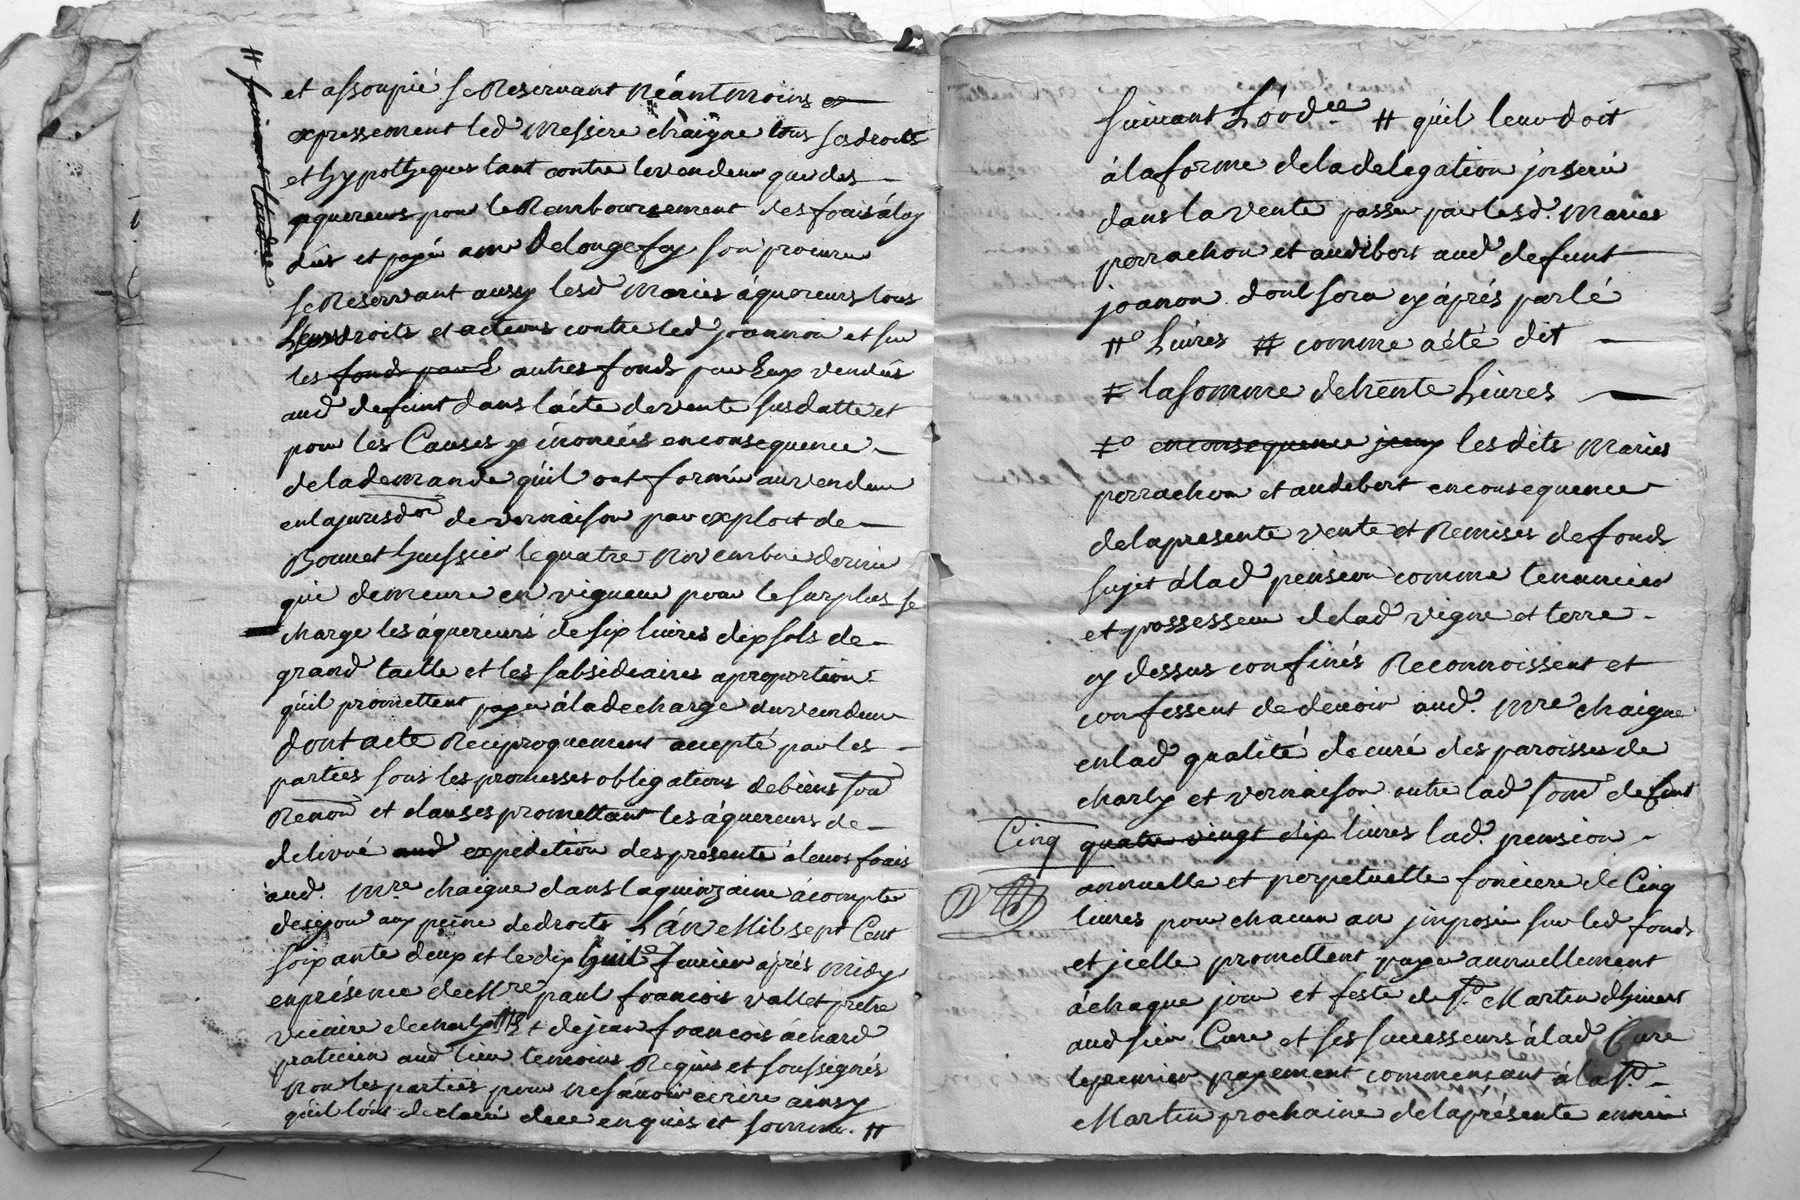 # suivant Lordre
et assoupié se Reservant Néantmoins et
expressement led Messire chaigne tous ses droits
et hypotheques tant contre le vendeur que des
aquereurs pour le Remboursement des frais à luy
dûs et payés a me Delongefay son procureur
se Reservant aussy lesd Mariés áquereurs tous
Leurs droits et actions contre led joannon et sur
les fonds par E autres fonds par Eux vendus
aud defunt dans l'acte de vente susdatté et
pour les Causes y énoncées en consequence
de la demande qu'il ont formée au vendeur
en la jurisdon de vernaison par exploit de
Bonnet huissier le quatre Novembre dernier
qui demeure en vigueur pour le surplus se
charge les áquereurs de six livres dix sols de
grand taille et les subsidiaires a proportion
qu'il promettent payer á la decharge du vendeur
dont acte Reciproquement accepté par les
parties sous les promesses obligations de biens son
Renon et clauses promettant les áquereurs de
delivré aud expedition des presente á leurs frais
aud. Mre chaigne dans la quinzaine á compter
de ce jour aux peine de droits L'án Mil sept Cent
soixante deux et le dix huit fevrier áprés midy
en présence de Mre paul francois vallet pretre
vicaire de charly et de jean francois áchard
praticien aud lieu temoins Requis et soussignés
non les parties pour ne sávoir écrire ainsy
qu'il lónt declaré de ce enquis et sommé. #
suivant Lórdre # qu'il leur doit
á la forme de la delegation jnserée
dans la vente passée par lesd. Mariés
perrachon et audibert aud defunt
joanon dont sera cy áprés parlé
#° Livres # comme a été dit
# la somme de trente Livres
#° en consequence jceux les dits Mariés
perrachon et audebert en consequence
de la presente vente et Remises de fonds
sujet á lad pension comme tenancier
et possesseur de lad vigne et terre
cy dessus confinés Reconnoissent et
confessent de devoir aud. Mre chaigne
en lad qualité de curé des paroisses de
charly et vernaison outre lad som de Cent
Cinq quatre vingt dix livres lad. pension
annuelle et perpetuelle fonciere de Cinq
livres pour chacun an jmposée sur led fonds
et jcelle promettent payer annuellement
á chaque jour et feste de St. Martin d'hivert
aud sieur Cure et ses successeurs á lad Cure
le premier payement commensant á la St.
Martin prochaine de la présente année